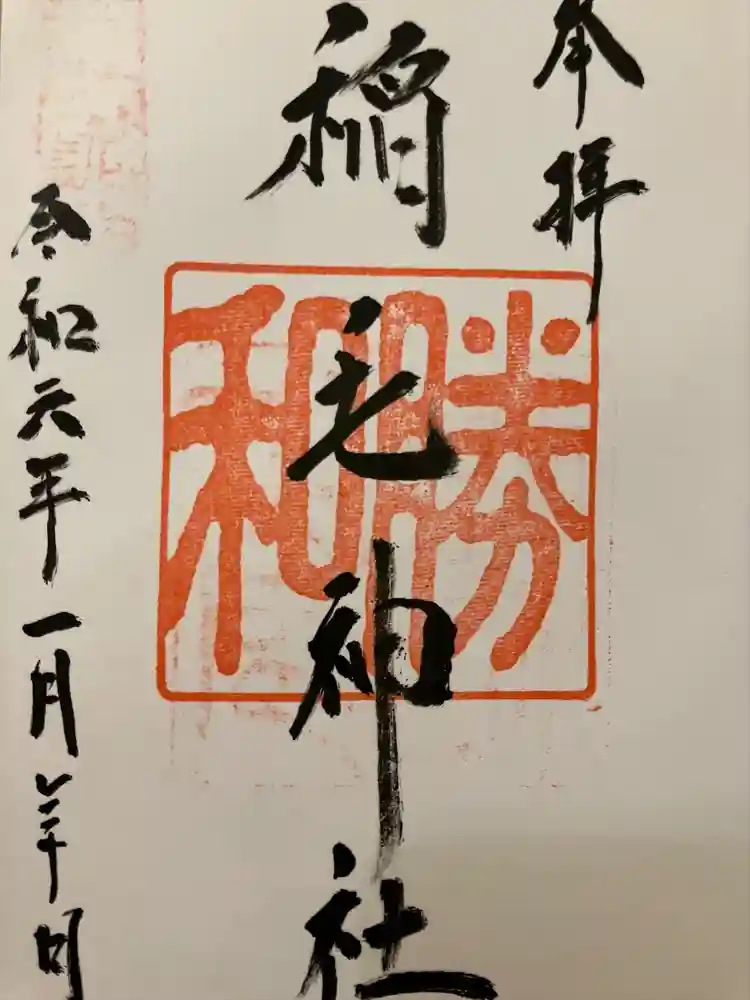 奉拝
稲毛神社
勝和
令和六年一月日